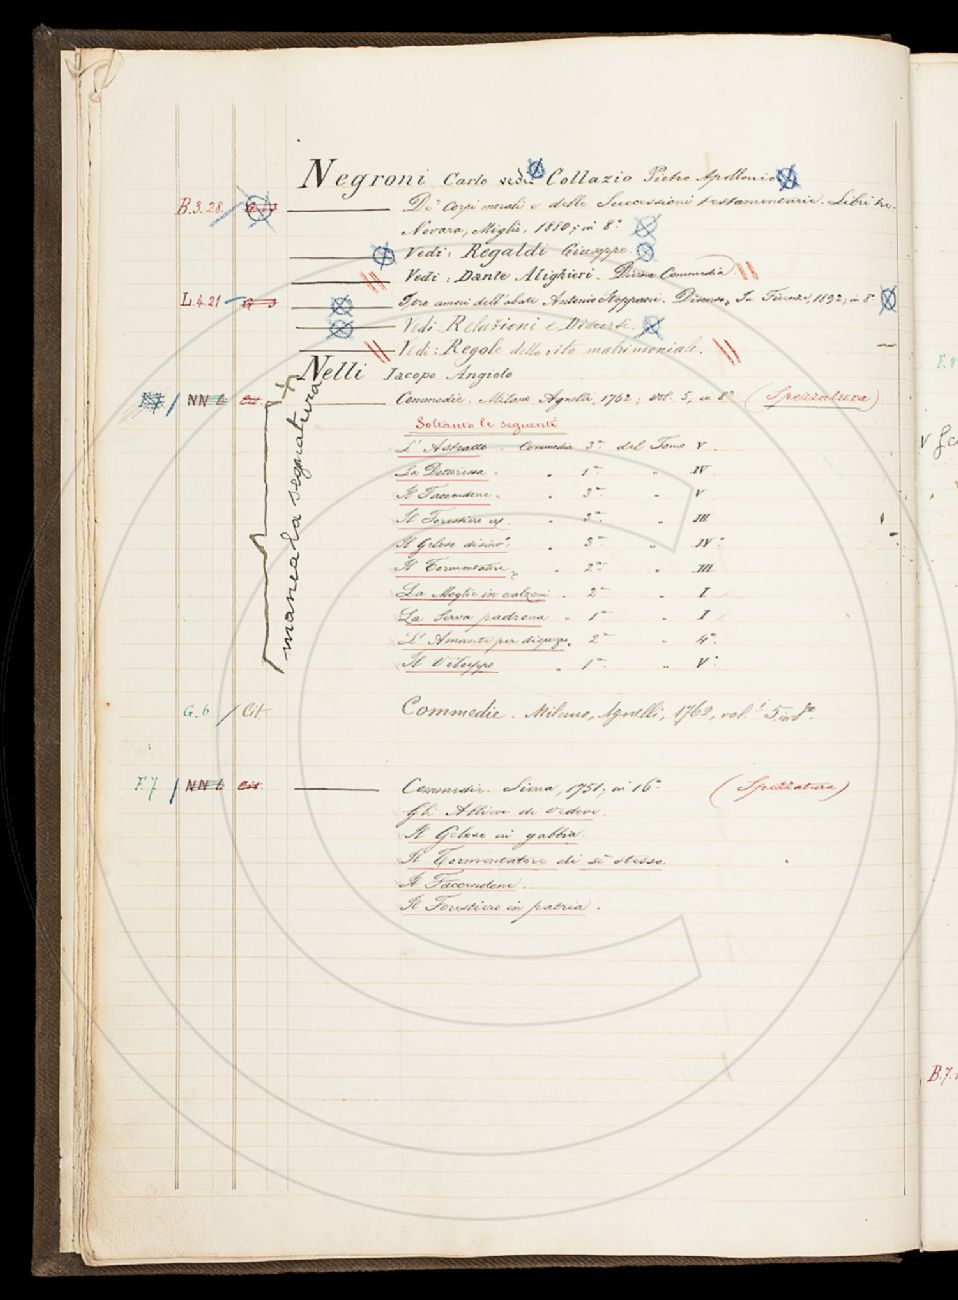 Negroni Carlo vedi Collazio Pietro Apollonio
B.3.28. De' Corpi morali e delle Successioni testamentarie. Libri tre.
Novara, Miglio, 1880; in 8°
Vedi: Regaldi Giuseppe.
Vedi: Dante Alighieri. Divina Commedia.
L.4.21 G 3 Tre amori dell'abate Antonio Stoppani. Discorso. In Firenze, 1892; in 8°
Vedi Relazioni e Discorsi.
Vedi: Regole della vita matrimoniale.
Nelli Iacopo Angiolo
NN 6 Cit. Commedie. Milano Agnelli, 1762; vol. 5, in 8° (Spezzatura)
manca la segnatura
Soltanto le seguenti
L'Astratto. Commedia 3a del Tomo V
La Dottoressa " 1a " IV
Il Faccendone " 3a " V
Il Forestiere " 3a " III
Il Geloso disinv° " 3a " IV°
Il Tormentatore " 2a " III
La Moglie in calzoni " 2a " I
La Serva padrona " 1a " I
L'Amante per disprezzo. 2a " 4°
Il Viluppo " 1a " V°
G.6 / Cit. Commedie. Milano, Agnelli, 1762, vol.i 5, in 8°.
F.7 / NN 6 Cit. Commedie. Siena, 1751; in 16° (Spezzatura)
Gli Allievi di vedove.
Il Geloso in gabbia.
Il Tormentatore di sè stesso.
Il Faccendone.
Il Forestiere in patria.
F.
V
B.7.